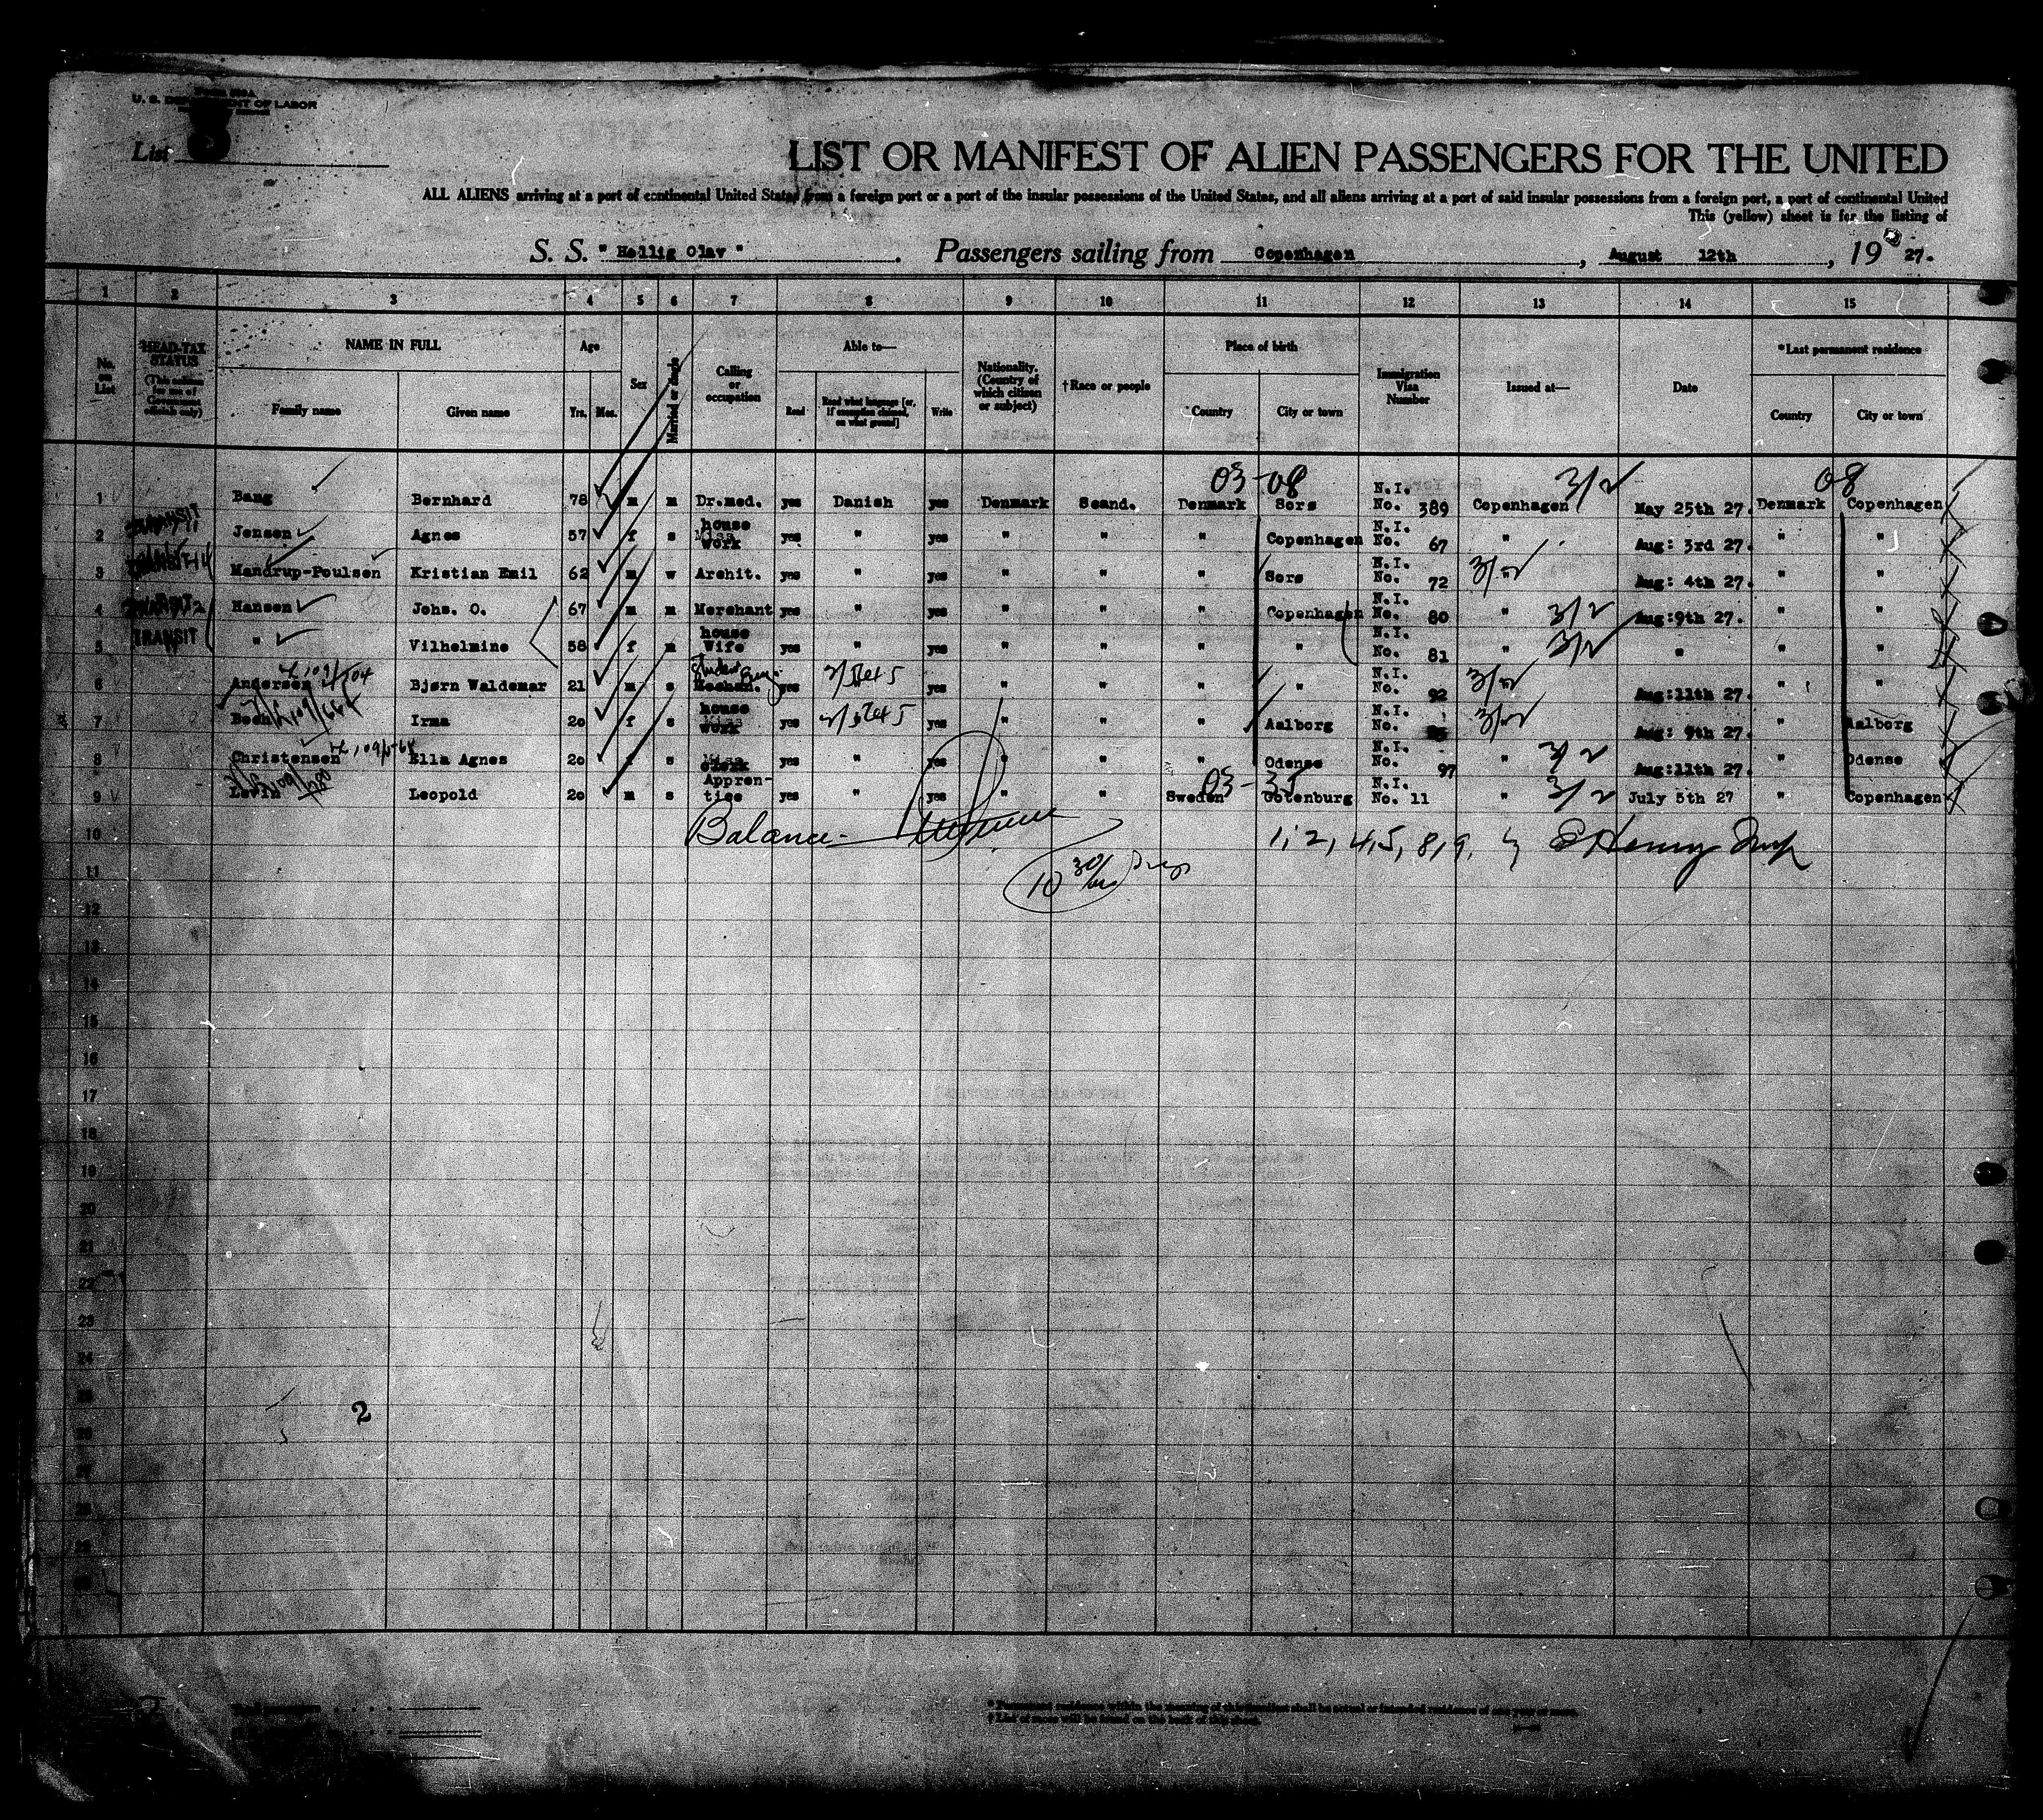 U. S. DEPARTMENT OF LABOR
List 8
LIST OR MANIFEST OF ALIEN PASSENGERS FOR THE UNITED
ALL ALIENS arriving at a port of continental United States from a foreign port or a port of the insular possessions of the United States, and all aliens arriving at a port of said insular possessions from a foreign port, a port of continental United
This (yellow) sheet is for the listing of
S. S. "Hellig Olav". Passengers sailing from Copenhagen, August 12th, 19 27.
1 2 3 4 5 6 7 8 9 10 11 12 13 14 15
No. on List
HEAD-TAX STATUS (This column for use of Government officials only)
NAME IN FULL
Family name Given name
Age
Yrs. Mos.
Sex
Married or single
Calling or occupation
Able to—
Read Read what language [or, if exemption claimed, on what ground] Write
Nationality. (Country of which citizen or subject)
†Race or people
Place of birth
Country City or town
Immigration Visa Number
Issued at—
Date
*Last permanent residence
Country City or town
03-08 3/2 08
1 Bang Bernhard 78 m m Dr.med. yes Danish yes Denmark Scand. Denmark Sorø N.I. No. 389 Copenhagen May 25th 27. Denmark Copenhagen
2 TRANSIT Jensen Agnes 57 f s house work yes " yes " " " Copenhagen N.I. No. 67 " Aug: 3rd 27. " "
3 TRANSIT Mandrup-Poulsen Kristian Emil 62 m w Archit. yes " yes " " " Sorø N.I. No. 72 Aug: 4th 27. " "
4 TRANSIT Hansen Johs. O. 67 m m Merchant yes " yes " " " Copenhagen N.I. No. 80 " 3/2 Aug:9th 27. " "
5 TRANSIT " Vilhelmine 58 f m house Wife yes " yes " " " " N.I. No. 81 " 3/2 " " "
6 Andersen Bjørn Waldemar 21 m s Mechan. yes yes " " " " N.I. No. 92 Aug:11th 27. " "
7 Irma 20 f s house work yes yes " " " Aalborg N.I. No. Aug: 9th 27. " Aalborg
8 Christensen Ella Agnes 20 f s clerk yes " yes " " " Odense N.I. No. 97 " 3/2 Aug:11th 27. " Odense
03-35
9 Levin Leopold 20 m s Apprentice yes " yes " " Sweden Gotenburg N.I. No. 11 " 3/2 July 5th 27 " Copenhagen
10 Balance 1, 2, 4, 5, 8, 9,
11 10 30
12
13
14
15
16
17
18
19
20
21
22
23
24
25
2
26
27
28
29
30
Total passengers
* Permanent residence within the meaning of this manifest shall be actual or intended residence of one year or more.
† List of races will be found on the back of this sheet.